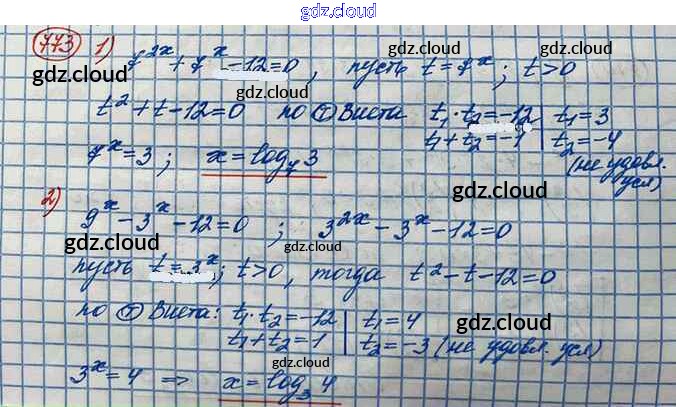 gdz.cloud
773 1) 7^{2x} + 7^x - 12 = 0, пусть t = 7^x; t > 0
gdz.cloud gdz.cloud
gdz.cloud
t² + t - 12 = 0 по Ⓣ Виета t₁·t₂ = -12 | t₁ = 3
t₁ + t₂ = -1 | t₂ = -4
(не удовл. усл)
7^x = 3; x = log₇ 3
gdz.cloud gdz.cloud
2) 9^x - 3^x - 12 = 0; 3^{2x} - 3^x - 12 = 0
gdz.cloud gdz.cloud
пусть t = 3^x; t > 0, тогда t² - t - 12 = 0
gdz.cloud
по Ⓣ Виета: t₁·t₂ = -12 | t₁ = 4
gdz.cloud
t₁ + t₂ = 1 | t₂ = -3 (не удовл. усл)
gdz.cloud gdz.cloud
3^x = 4 => x = log₃ 4
gdz.cloud